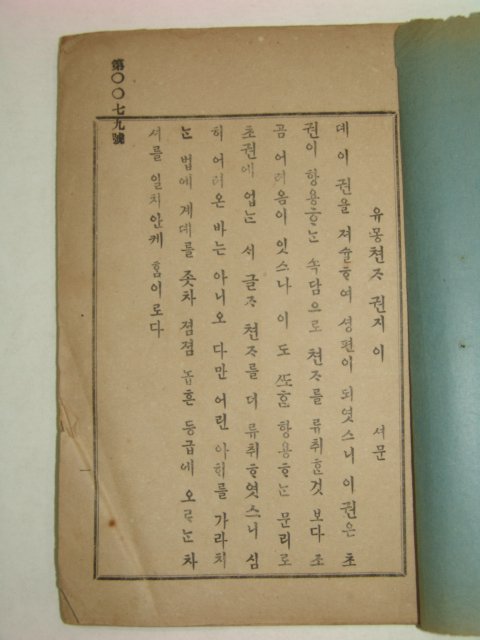 第〇〇七九號
유몽쳔ᄌᆞ 권지이 셔문
데이권을 져슐ᄒᆞ여 셩편이 되엿스니 이권은 초
권이 항용ᄒᆞᄂᆞᆫ 쇽담으로 쳔ᄌᆞ를 류취ᄒᆞᆫ것 보다 조
곰 어려옴이 잇스나 이도 ᄯᅩᄒᆞᆫ 항용ᄒᆞᄂᆞᆫ 문리로
초권에 업ᄂᆞᆫ 새 글ᄌᆞ 쳔ᄌᆞ를 더 류취ᄒᆞ엿스니 심
히 어려온 바는 아니오 다만 어린 아ᄒᆡ를 가라치
ᄂᆞᆫ 법에 계뎨를 좃차 졈졈 놉흔 등급에 오ᄅᆞᄂᆞᆫ 차
셔를 일치안케 ᄒᆞᆷ이로다